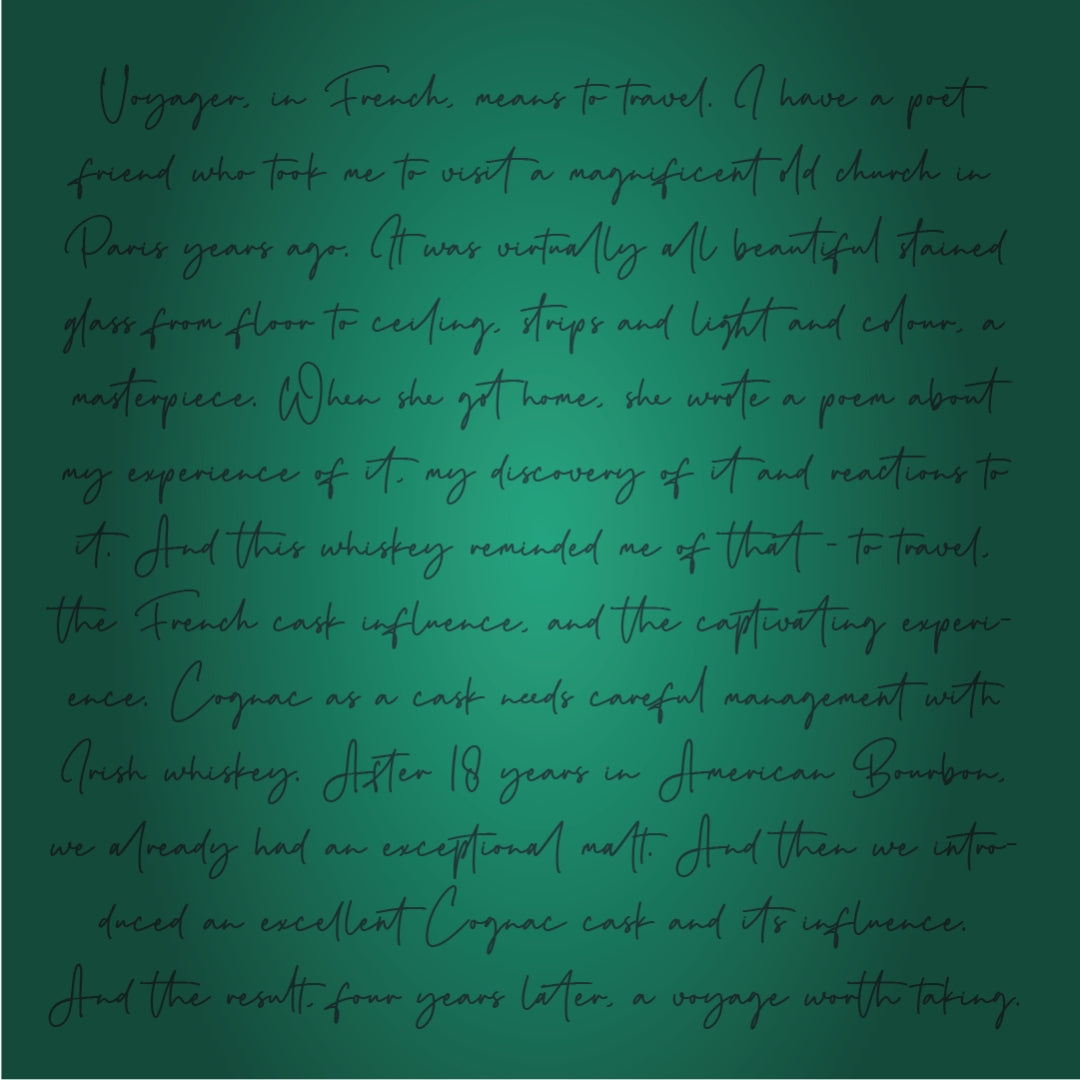 Voyager, in French, means to travel. I have a poet
friend who took me to visit a magnificent old church in
Paris years ago. It was virtually all beautiful stained
glass from floor to ceiling, strips and light and colour, a
masterpiece. When she got home, she wrote a poem about
my experience of it, my discovery of it and reactions to
it. And this whiskey reminded me of that - to travel,
the French cask influence, and the captivating experi-
ence. Cognac as a cask needs careful management with
Irish whiskey. After 18 years in American Bourbon,
we already had an exceptional malt. And then we intro-
duced an excellent Cognac cask and its influence.
And the result, four years later, a voyage worth taking.